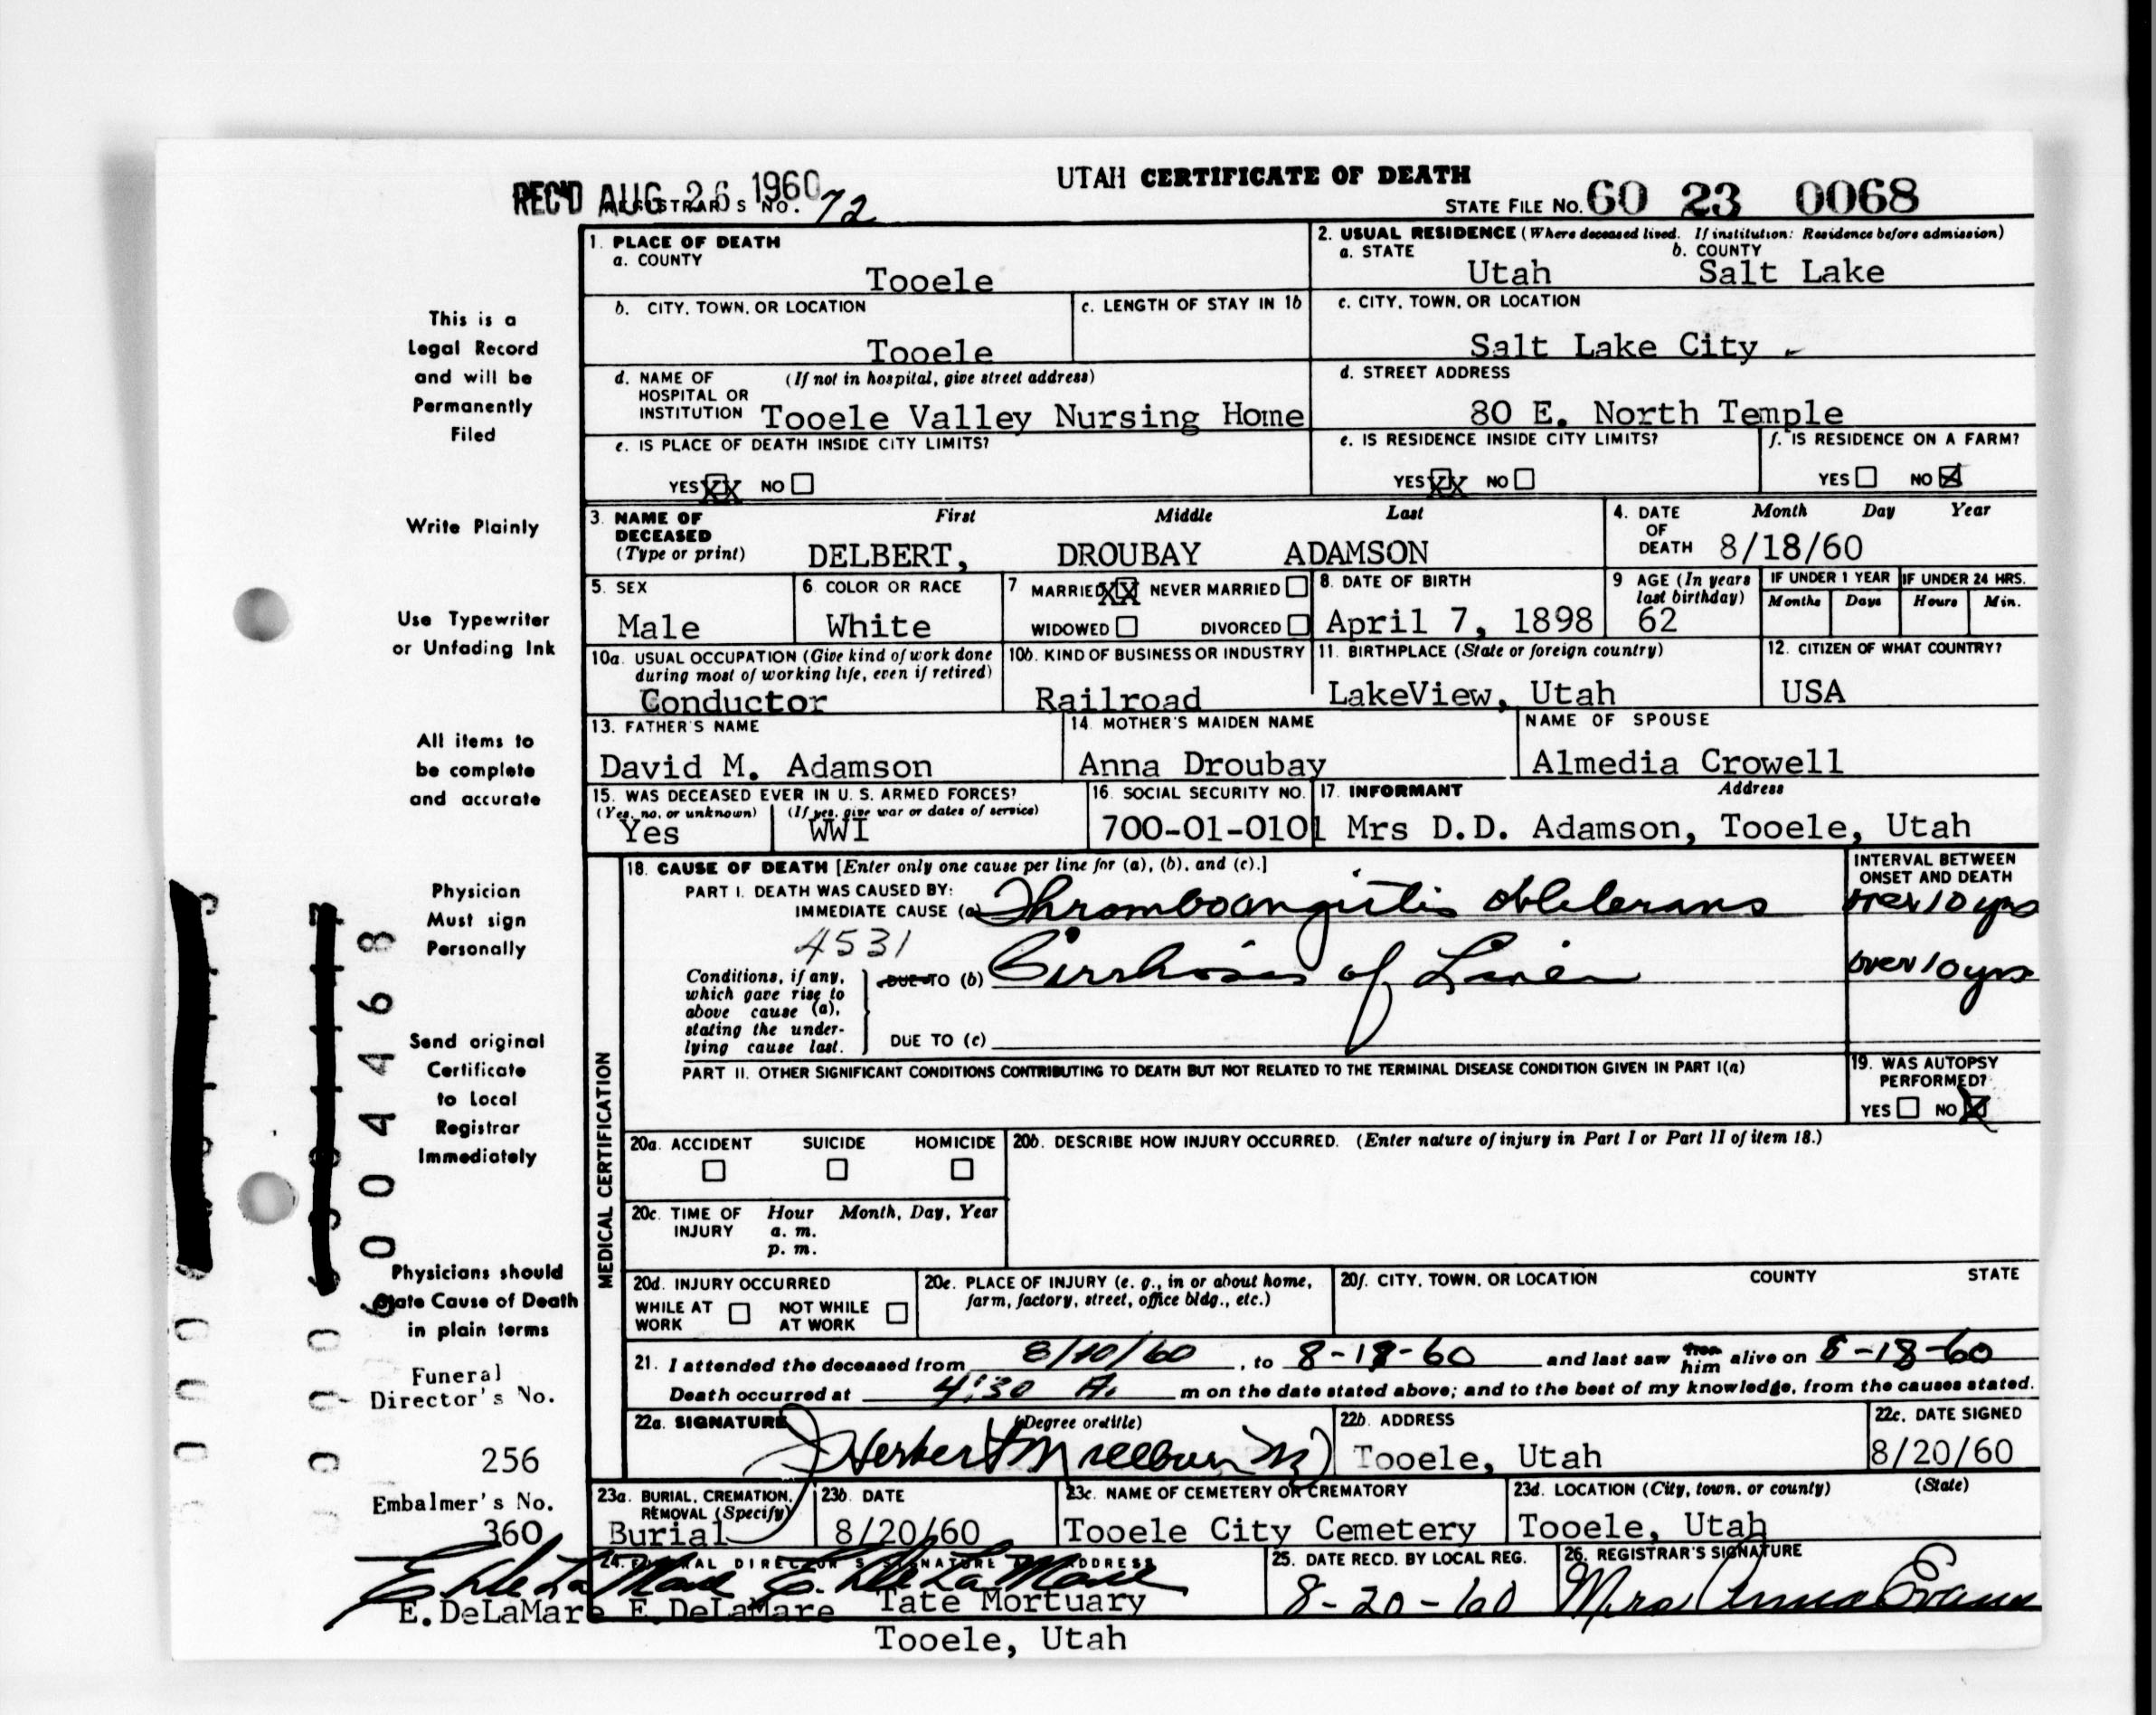 UTAH CERTIFICATE OF DEATH
REC'D AUG 26 1960
REGISTRAR'S NO. 72
STATE FILE NO. 60 23 0068
1. PLACE OF DEATH
a. COUNTY
Tooele
2. USUAL RESIDENCE (Where deceased lived. If institution: Residence before admission)
a. STATE b. COUNTY
Utah Salt Lake
b. CITY, TOWN, OR LOCATION
Tooele
c. LENGTH OF STAY IN 1b
c. CITY, TOWN, OR LOCATION
Salt Lake City
d. NAME OF (If not in hospital, give street address)
HOSPITAL OR
INSTITUTION Tooele Valley Nursing Home
d. STREET ADDRESS
80 E. North Temple
e. IS PLACE OF DEATH INSIDE CITY LIMITS?
YES XX NO
e. IS RESIDENCE INSIDE CITY LIMITS?
YES XX NO
f. IS RESIDENCE ON A FARM?
YES NO X
3. NAME OF DECEASED
(Type or print)
First Middle Last
DELBERT, DROUBAY ADAMSON
4. DATE OF DEATH
Month Day Year
8/18/60
5. SEX
Male
6. COLOR OR RACE
White
7 MARRIED XX NEVER MARRIED
WIDOWED DIVORCED
8. DATE OF BIRTH
April 7, 1898
9 AGE (In years last birthday)
62
IF UNDER 1 YEAR IF UNDER 24 HRS.
Months Days Hours Min.
10a. USUAL OCCUPATION (Give kind of work done
during most of working life, even if retired)
Conductor
10b. KIND OF BUSINESS OR INDUSTRY
Railroad
11. BIRTHPLACE (State or foreign country)
LakeView, Utah
12. CITIZEN OF WHAT COUNTRY?
USA
13. FATHER'S NAME
David M. Adamson
14. MOTHER'S MAIDEN NAME
Anna Droubay
NAME OF SPOUSE
Almedia Crowell
15. WAS DECEASED EVER IN U. S. ARMED FORCES?
(Yes, no, or unknown) (If yes, give war or dates of service)
Yes WWI
16. SOCIAL SECURITY NO.
700-01-0101
17. INFORMANT Address
Mrs D.D. Adamson, Tooele, Utah
MEDICAL CERTIFICATION
18. CAUSE OF DEATH [Enter only one cause per line for (a), (b), and (c).]
INTERVAL BETWEEN
ONSET AND DEATH
PART I. DEATH WAS CAUSED BY:
IMMEDIATE CAUSE (a) Thromboangiitis obliterans over 10 yrs
4531
Conditions, if any,
which gave rise to
above cause (a),
stating the under-
lying cause last.
DUE TO (b) Cirrhosis of Liver over 10 yrs
DUE TO (c)
PART II. OTHER SIGNIFICANT CONDITIONS CONTRIBUTING TO DEATH BUT NOT RELATED TO THE TERMINAL DISEASE CONDITION GIVEN IN PART I(a)
19. WAS AUTOPSY
PERFORMED?
YES NO X
20a. ACCIDENT SUICIDE HOMICIDE
20b. DESCRIBE HOW INJURY OCCURRED. (Enter nature of injury in Part I or Part II of item 18.)
20c. TIME OF INJURY
Hour Month, Day, Year
a. m.
p. m.
20d. INJURY OCCURRED
WHILE AT WORK NOT WHILE AT WORK
20e. PLACE OF INJURY (e. g., in or about home,
farm, factory, street, office bldg., etc.)
20f. CITY, TOWN, OR LOCATION COUNTY STATE
21. I attended the deceased from 8/10/60, to 8-18-60 and last saw him alive on 8-18-60
Death occurred at 4:30 A. m on the date stated above; and to the best of my knowledge, from the causes stated.
22a. SIGNATURE (Degree or title)
22b. ADDRESS
Tooele, Utah
22c. DATE SIGNED
8/20/60
23a. BURIAL, CREMATION,
REMOVAL (Specify)
Burial
23b. DATE
8/20/60
23c. NAME OF CEMETERY OR CREMATORY
Tooele City Cemetery
23d. LOCATION (City, town, or county) (State)
Tooele, Utah
24. FUNERAL DIRECTOR'S SIGNATURE ADDRESS
E. DeLaMare E. DeLaMare
E. DeLaMare E. DeLaMare Tate Mortuary
Tooele, Utah
25. DATE RECD. BY LOCAL REG.
8-20-60
26. REGISTRAR'S SIGNATURE
Mrs Anna Evans
This is a
Legal Record
and will be
Permanently
Filed
Write Plainly
Use Typewriter
or Unfading Ink
All items to
be complete
and accurate
Physician
Must sign
Personally
Send original
Certificate
to Local
Registrar
Immediately
Physicians should
State Cause of Death
in plain terms
Funeral
Director's No.
256
Embalmer's No.
360
6004468